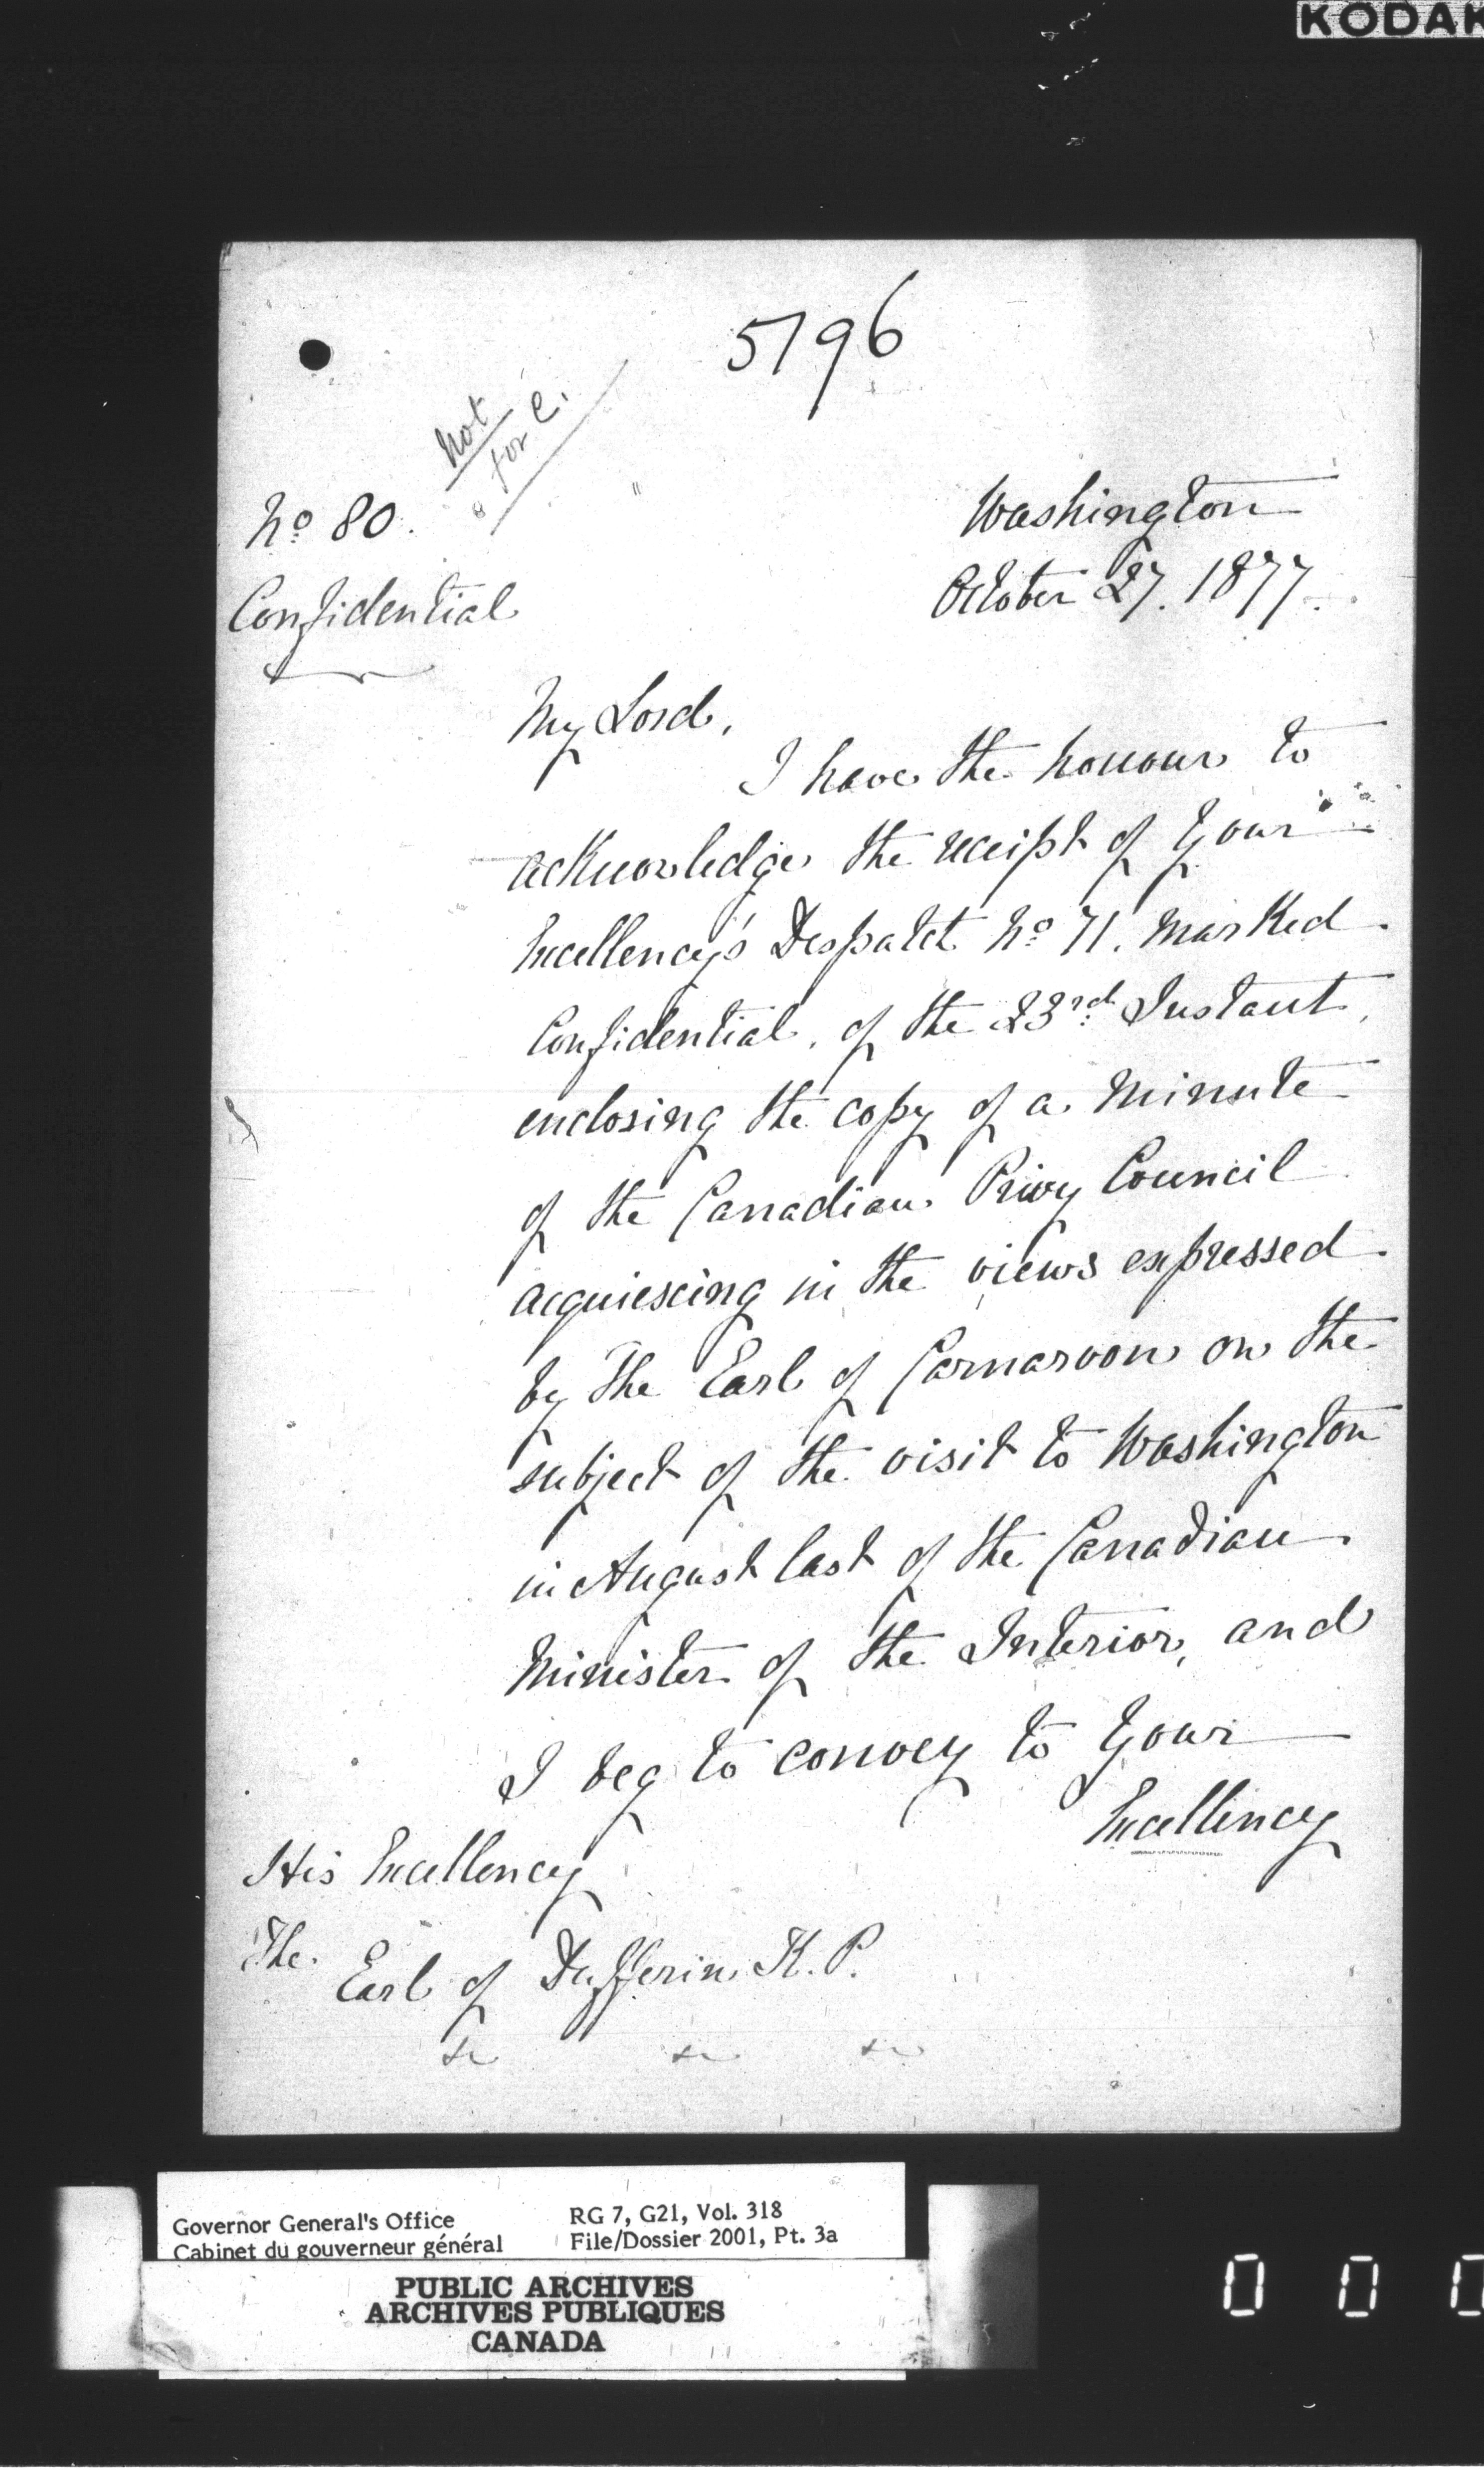 KODAK
5796
Not
for C.
No. 80.
Confidential
Washington
October 27. 1877.
My Lord,
I have the honour to
acknowledge the receipt of Your
Excellency's Despatch No. 71. Marked
Confidential, of the 23rd Instant,
enclosing the copy of a Minute
of the Canadian Privy Council
acquiescing in the views expressed
by The Earl of Carnarvon on the
subject of the visit to Washington
in August last of the Canadian
Minister of the Interior, and
I beg to convey to Your
Excellency
His Excellency
The Earl of Dufferin K.P.
&c &c &c
Governor General's Office
Cabinet du gouverneur général
RG 7, G21, Vol. 318
File/Dossier 2001, Pt. 3a
PUBLIC ARCHIVES
ARCHIVES PUBLIQUES
CANADA
0 0 0